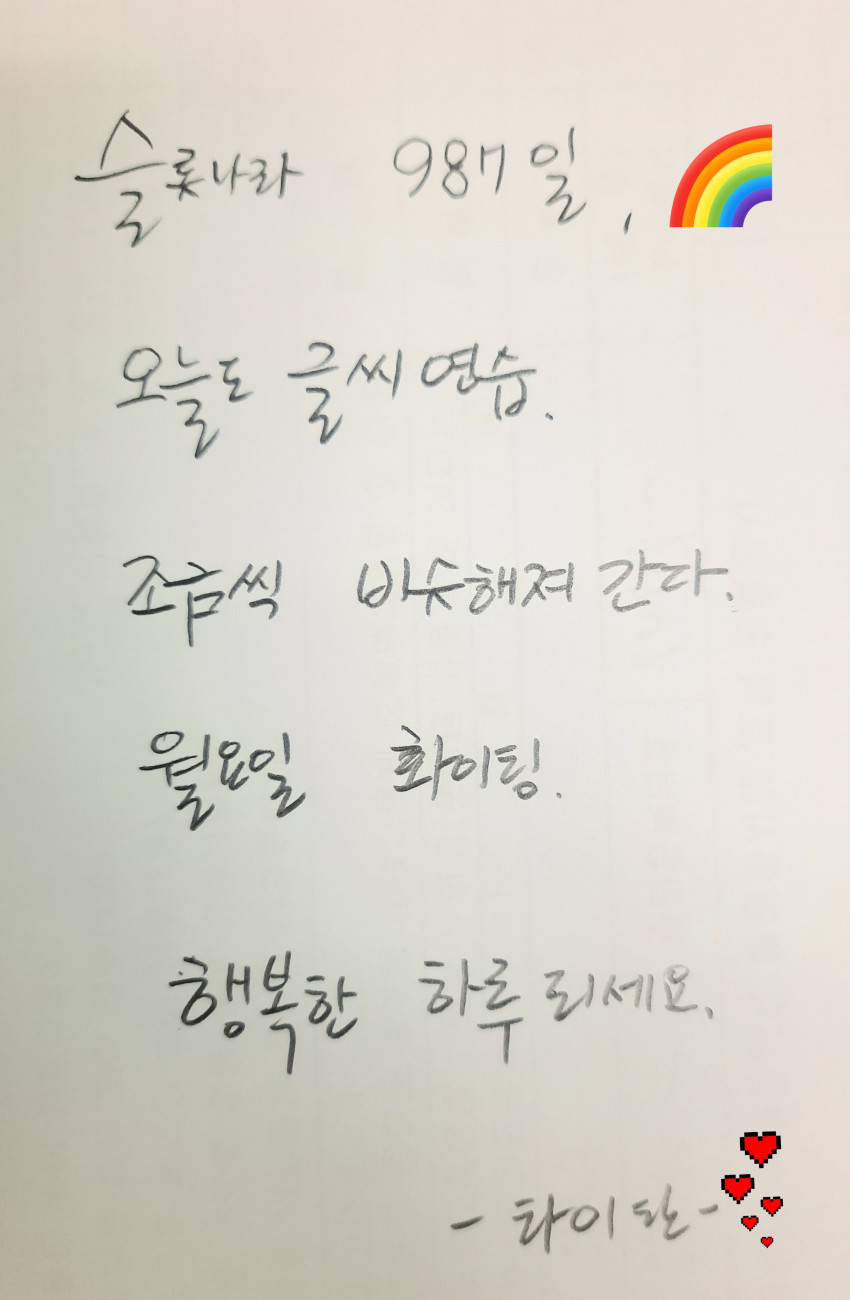 슬롯나라 987일,
오늘도 글씨 연습.
조금씩 비슷해져 간다.
월요일 화이팅.
행복한 하루 되세요.
- 타이탄 -